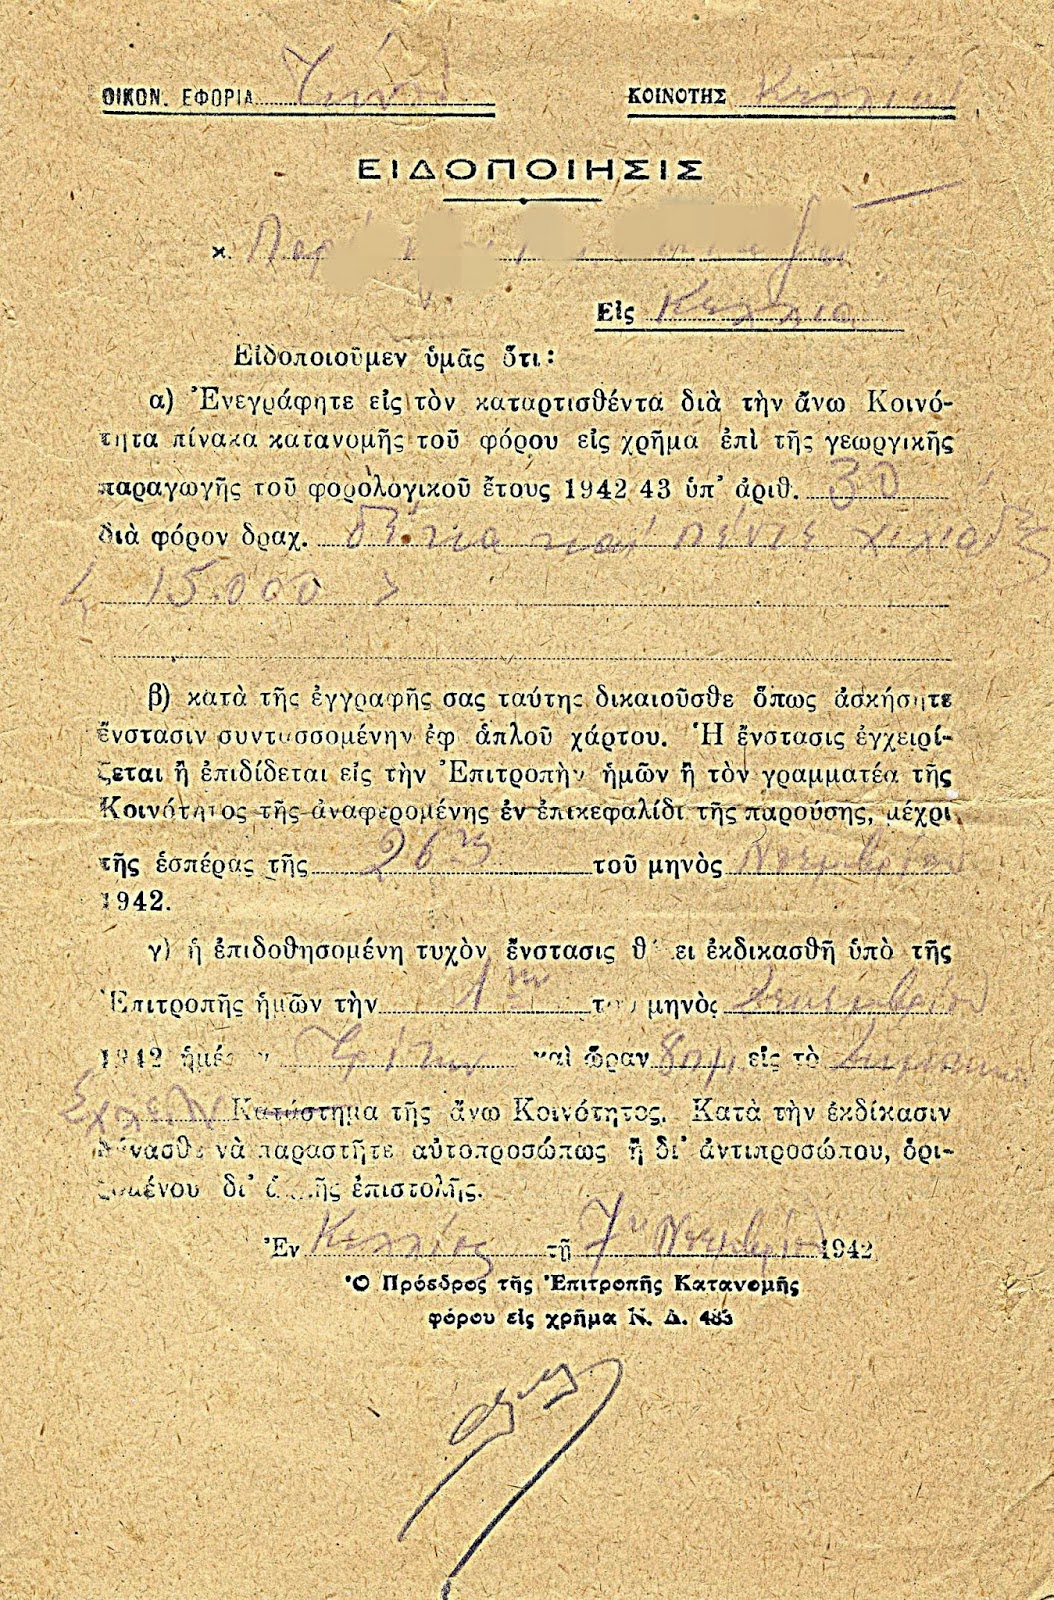 ΟΙΚΟΝ. ΕΦΟΡΙΑ ΚΟΙΝΟΤΗΣ
ΕΙΔΟΠΟΙΗΣΙΣ
κ.
Εἰς Κέλλια
Εἰδοποιοῦμεν ὑμᾶς ὅτι:
α) Ἐνεγράφητε εἰς τὸν καταρτισθέντα διὰ τὴν ἄνω Κοινό-
τητα πίνακα κατανομῆς τοῦ φόρου εἰς χρῆμα ἐπὶ τῆς γεωργικῆς
παραγωγῆς τοῦ φορολογικοῦ ἔτους 1942 43 ὑπ' ἀριθ. 30
διὰ φόρον δραχ. δέκα καὶ πέντε χιλιάδες
( 15.000 )
β) κατὰ τῆς ἐγγραφῆς σας ταύτης δικαιοῦσθε ὅπως ἀσκήσητε
ἔνστασιν συντασσομένην ἐφ ἁπλοῦ χάρτου. Ἡ ἔνστασις ἐγχειρί-
ζεται ἢ ἐπιδίδεται εἰς τὴν Ἐπιτροπὴν ἡμῶν ἢ τὸν γραμματέα τῆς
Κοινότητος τῆς ἀναφερομένης ἐν ἐπικεφαλίδι τῆς παρούσης, μέχρι
τῆς ἑσπέρας τῆς 26ης τοῦ μηνὸς Νοεμβρίου
1942.
γ) ἡ ἐπιδοθησομένη τυχὸν ἔνστασις θ ει ἐκδικασθῆ ὑπὸ τῆς
Ἐπιτροπῆς ἡμῶν τὴν 1ην τοῦ μηνὸς Δεκεμβρίου
1942 ἡμέραν Τρίτην καὶ ὥραν 8πμ εἰς τὸ Δημοτικὸ
Σχολεῖο Κατάστημα τῆς ἄνω Κοινότητος. Κατὰ τὴν ἐκδίκασιν
δύνασθε νὰ παραστῆτε αὐτοπροσώπως ἢ δι' ἀντιπροσώπου, ὁρι-
ζομένου δι' ἁπλῆς ἐπιστολῆς.
Ἐν τῇ 7η Νοεμβρίου 1942
Ὁ Πρόεδρος τῆς Ἐπιτροπῆς Κατανομῆς
φόρου εἰς χρῆμα Ν. Δ. 483